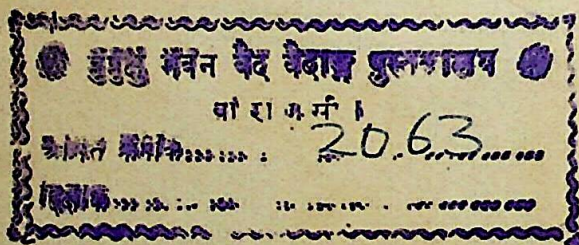 मुमुक्षु भवन वेद वेदाङ्ग पुस्तकालय
वा रा ण सी ।
आगत क्रमांक............ 20.63............
दिनांक............